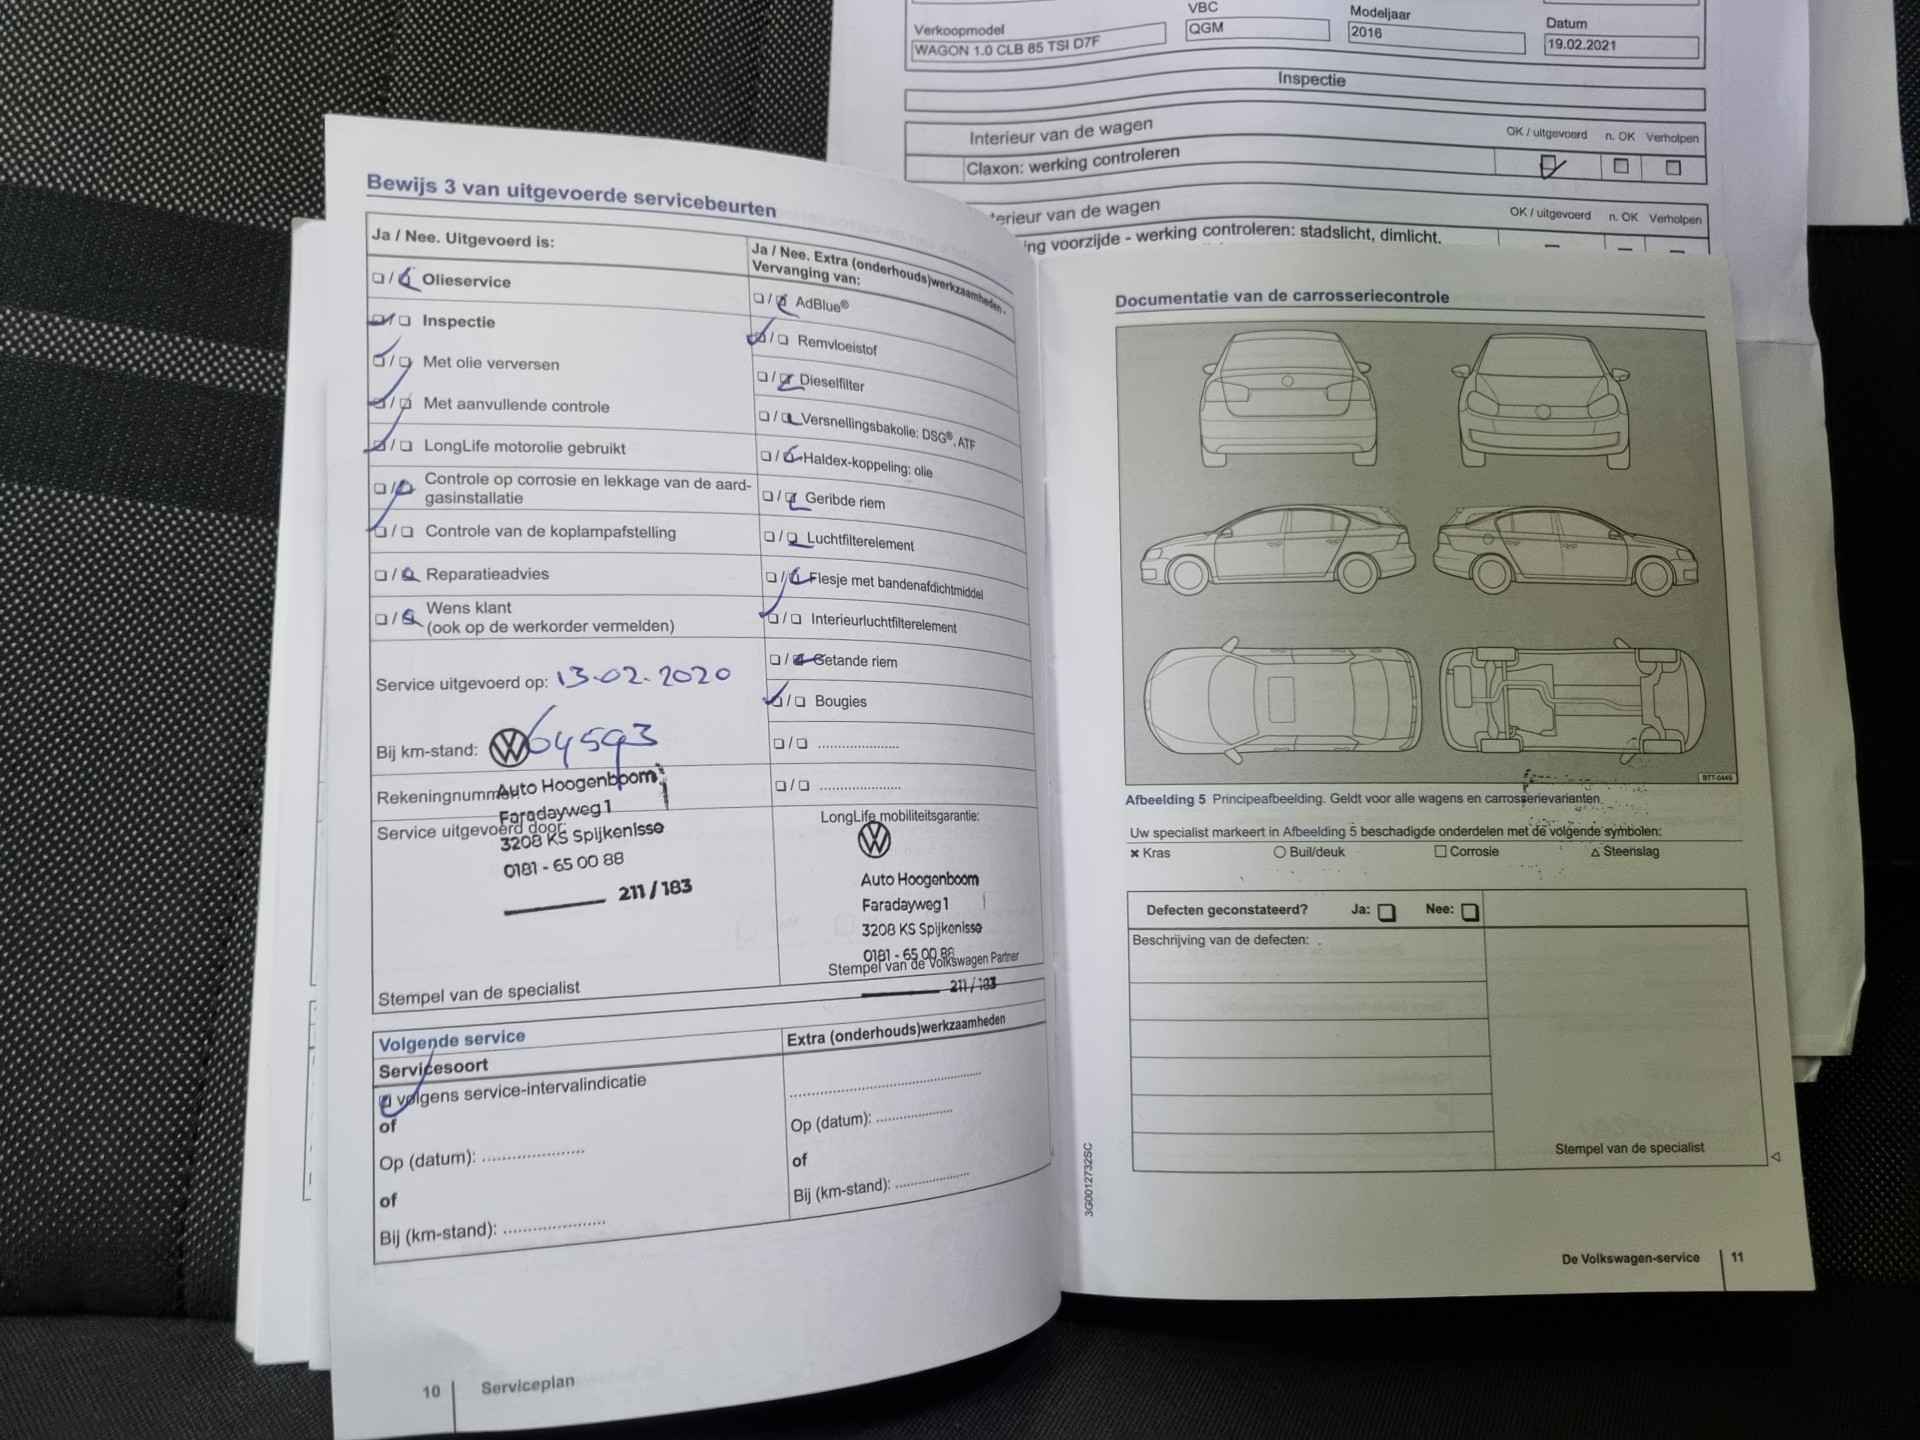 VBC
Modeljaar
Datum
Verkoopmodel
WAGON 1.0 CLB 85 TSI D7F
QGM
2016
19.02.2021
Inspectie
Interieur van de wagen
OK / uitgevoerd n. OK Verholpen
Claxon: werking controleren
terieur van de wagen
OK / uitgevoerd n. OK Verholpen
ing voorzijde - werking controleren: stadslicht, dimlicht.
Bewijs 3 van uitgevoerde servicebeurten
Ja / Nee. Uitgevoerd is:
Olieservice
Inspectie
Met olie verversen
Met aanvullende controle
LongLife motorolie gebruikt
Controle op corrosie en lekkage van de aard-
gasinstallatie
Controle van de koplampafstelling
Reparatieadvies
Wens klant
(ook op de werkorder vermelden)
Service uitgevoerd op: 13-02-2020
Bij km-stand: 64593
Rekeningnummer:
Service uitgevoerd door:
Auto Hoogenboom
Faradayweg 1
3208 KS Spijkenisse
0181 - 65 00 88
211 / 183
Stempel van de specialist
Ja / Nee. Extra (onderhouds)werkzaamheden -
Vervanging van:
AdBlue®
Remvloeistof
Dieselfilter
Versnellingsbakolie: DSG®, ATF
Haldex-koppeling: olie
Geribde riem
Luchtfilterelement
Flesje met bandenafdichtmiddel
Interieurluchtfilterelement
Getande riem
Bougies
LongLife mobiliteitsgarantie:
Auto Hoogenboom
Faradayweg 1
3208 KS Spijkenisse
0181 - 65 00 88
Stempel van de Volkswagen Partner
211 / 183
Volgende service
Servicesoort
volgens service-intervalindicatie
of
Op (datum): ....................
of
Bij (km-stand): ....................
Extra (onderhouds)werkzaamheden
Op (datum): ....................
of
Bij (km-stand): ....................
10 Serviceplan
Documentatie van de carrosseriecontrole
BTT-0449
Afbeelding 5 Principeafbeelding. Geldt voor alle wagens en carrosserievarianten.
Uw specialist markeert in Afbeelding 5 beschadigde onderdelen met de volgende symbolen:
Kras Buil/deuk Corrosie Steenslag
Defecten geconstateerd? Ja: Nee:
Beschrijving van de defecten:
Stempel van de specialist
3G0012732SC
De Volkswagen-service 11